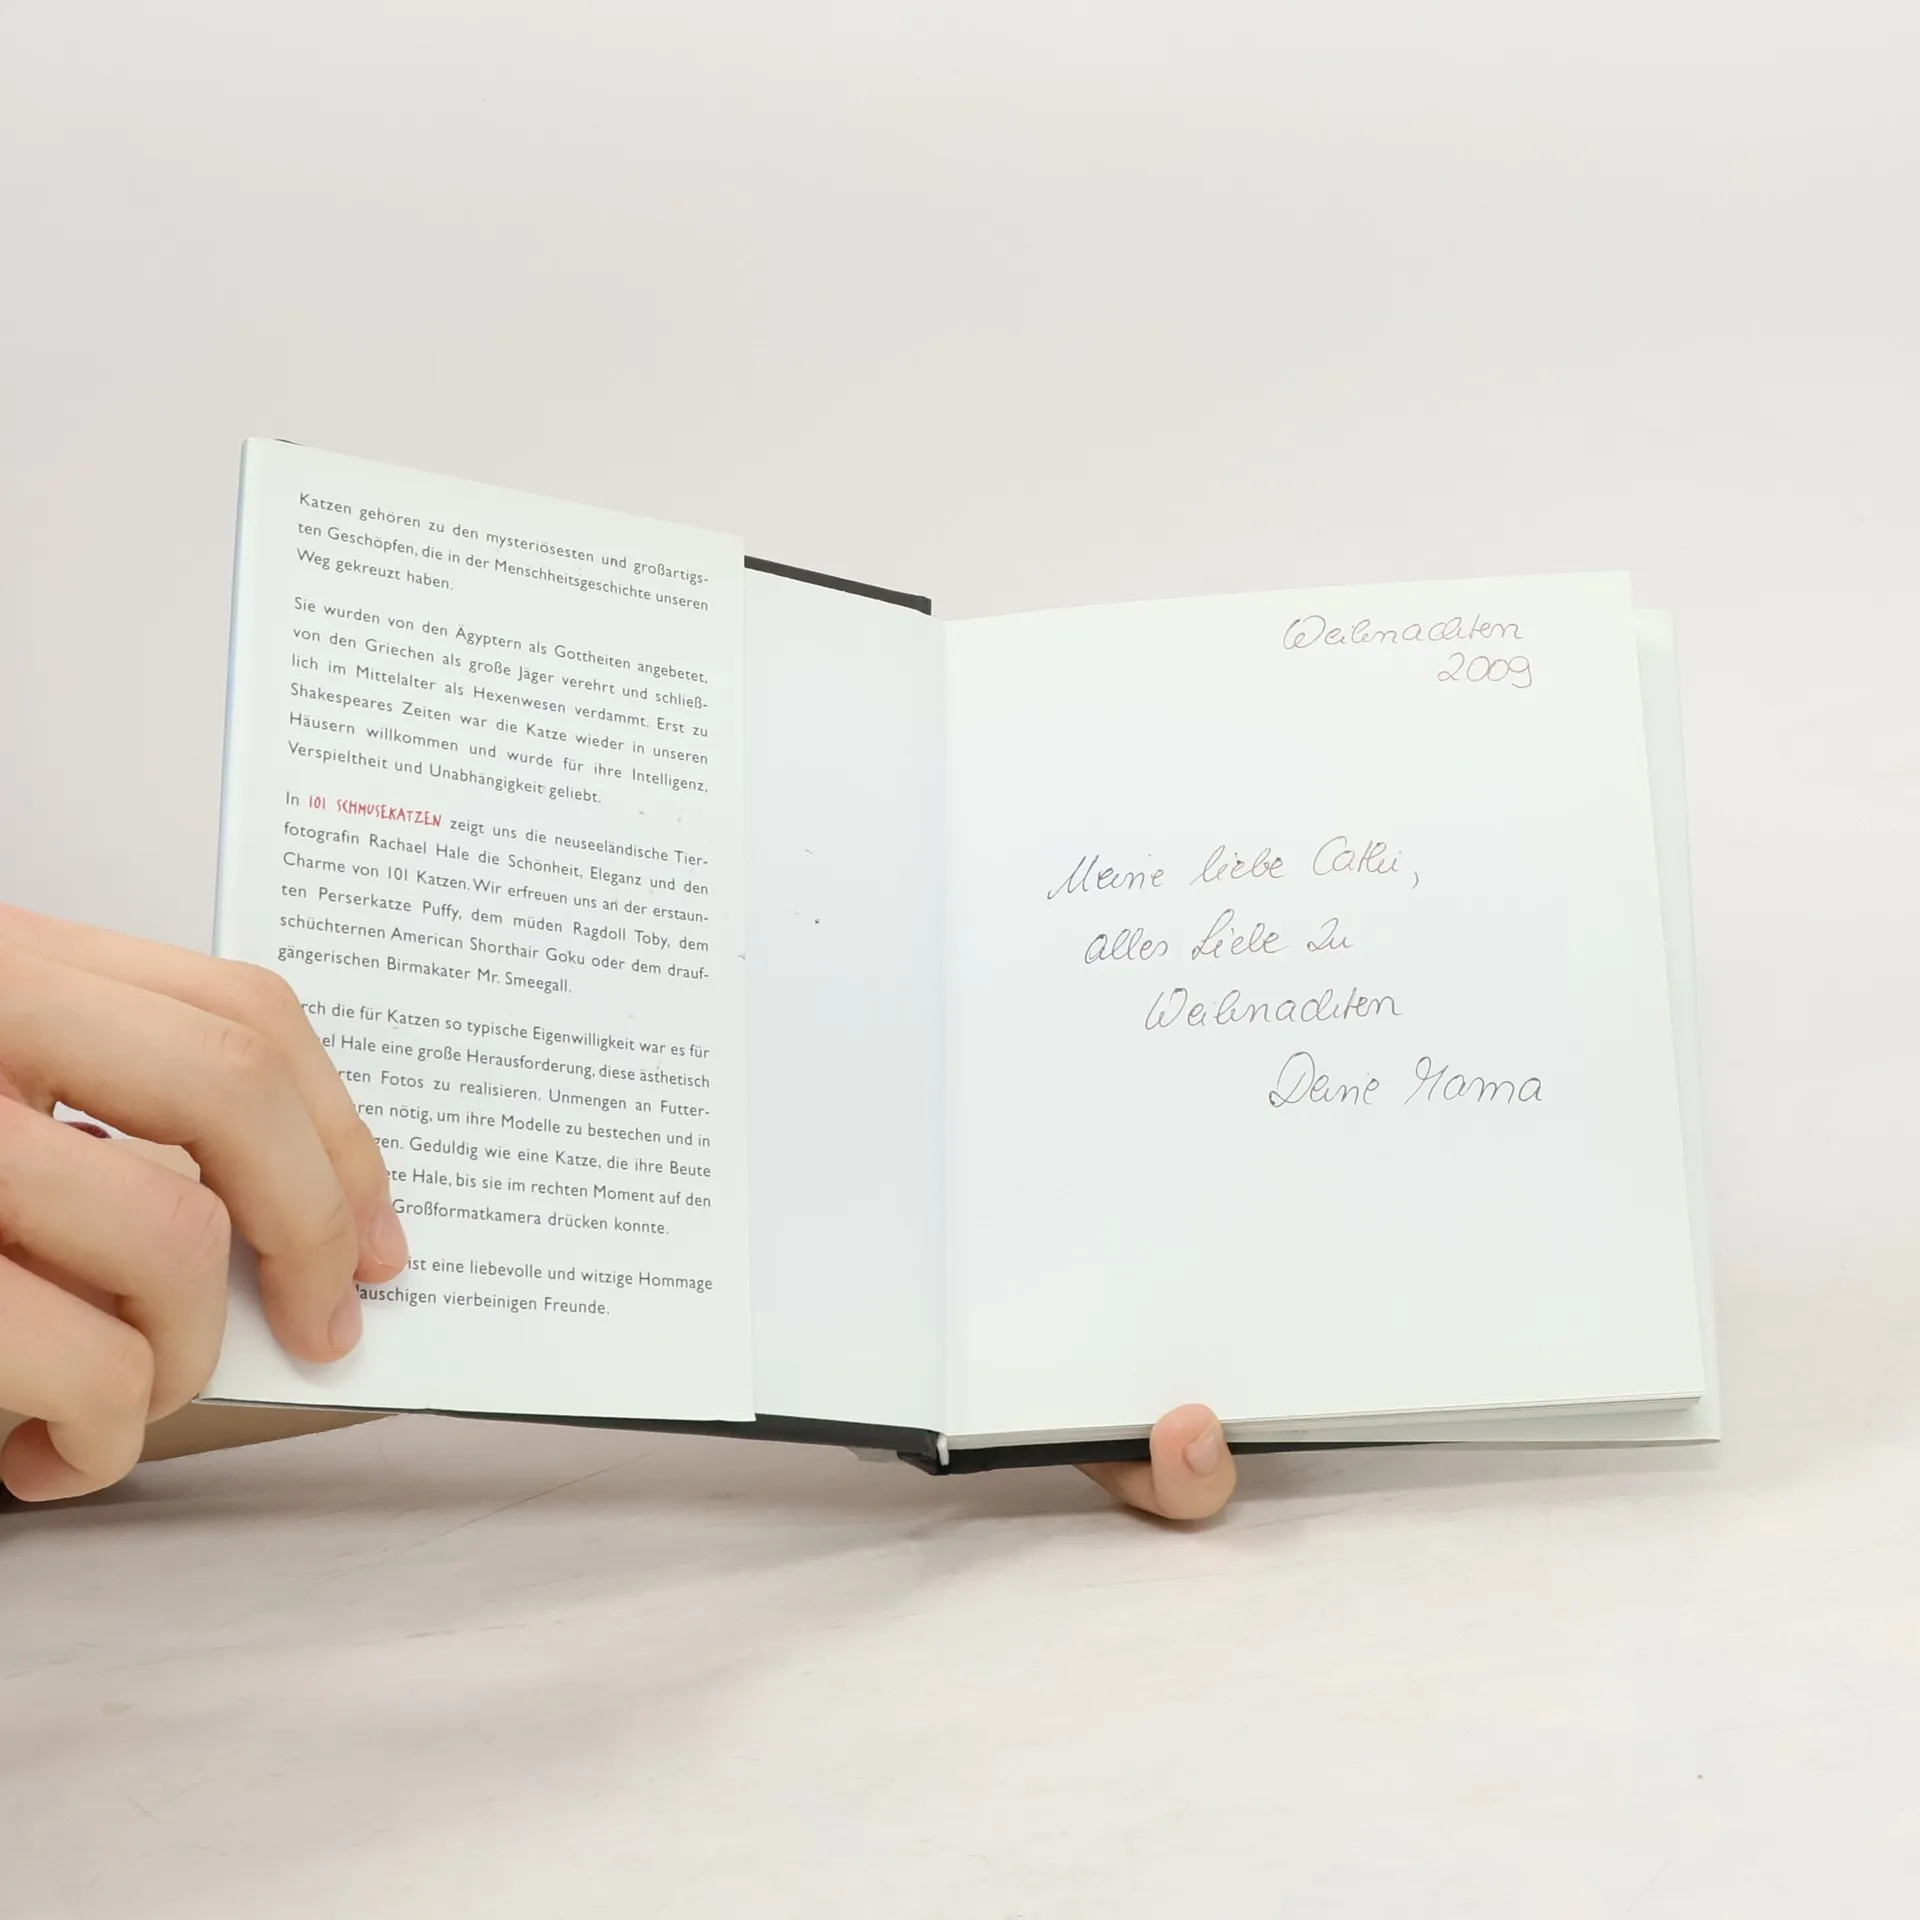 Katzen gehören zu den mysteriösesten und großartigs-
ten Geschöpfen, die in der Menschheitsgeschichte unseren
Weg gekreuzt haben.
Sie wurden von den Ägyptern als Gottheiten angebetet,
von den Griechen als große Jäger verehrt und schließ-
lich im Mittelalter als Hexenwesen verdammt. Erst zu
Shakespeares Zeiten war die Katze wieder in unseren
Häusern willkommen und wurde für ihre Intelligenz,
Verspieltheit und Unabhängigkeit geliebt.
In 101 SCHMUSEKATZEN zeigt uns die neuseeländische Tier-
fotografin Rachael Hale die Schönheit, Eleganz und den
Charme von 101 Katzen. Wir erfreuen uns an der erstaun-
ten Perserkatze Puffy, dem müden Ragdoll Toby, dem
schüchternen American Shorthair Goku oder dem drauf-
gängerischen Birmakater Mr. Smeegall.
rch die für Katzen so typische Eigenwilligkeit war es für
el Hale eine große Herausforderung, diese ästhetisch
rten Fotos zu realisieren. Unmengen an Futter-
ren nötig, um ihre Modelle zu bestechen und in
gen. Geduldig wie eine Katze, die ihre Beute
ete Hale, bis sie im rechten Moment auf den
Großformatkamera drücken konnte.
ist eine liebevolle und witzige Hommage
lauschigen vierbeinigen Freunde.
Weihnachten
2009
Meine liebe Cathi,
alles Liebe zu
Weihnachten
Deine Mama